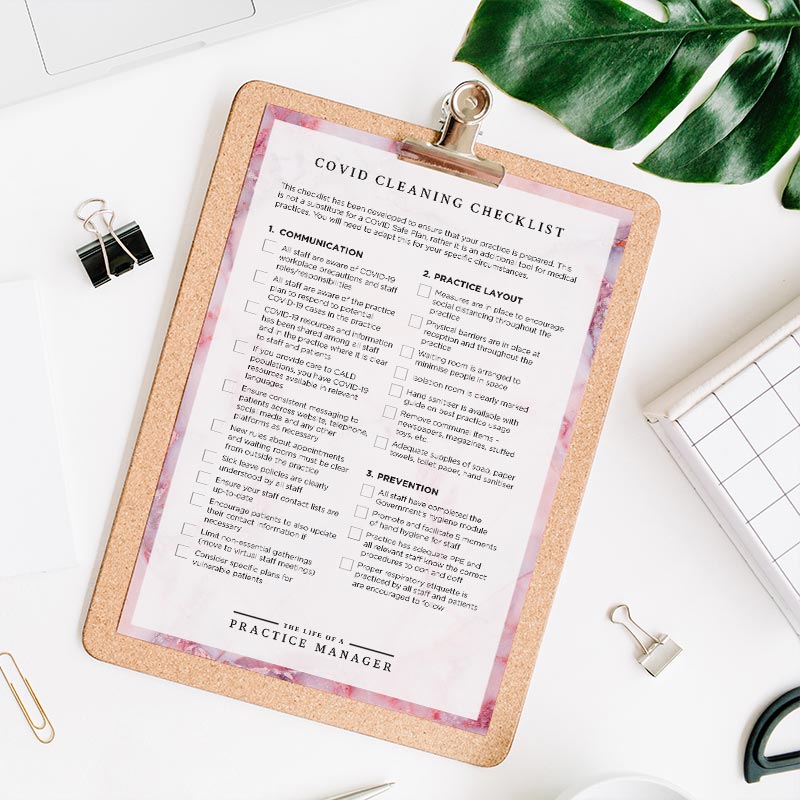 COVID CLEANING CHECKLIST
This checklist has been developed to ensure that your practice is prepared. This
is not a substitute for a COVID Safe Plan, rather it is an additional tool for medical
practices. You will need to adapt this for your specific circumstances.
1. COMMUNICATION
All staff are aware of COVID-19
workplace precautions and staff
roles/responsibilities
All staff are aware of the practice
plan to respond to potential
COVID-19 cases in the practice
COVID-19 resources and information
has been shared among all staff
and in the practice where it is clear
to staff and patients
If you provide care to CALD
populations, you have COVID-19
resources available in relevant
languages
Ensure consistent messaging to
patients across website, telephone,
social media and any other
platforms as necessary
New rules about appointments
and waiting rooms must be clear
from outside the practice
Sick leave policies are clearly
understood by all staff
Ensure your staff contact lists are
up-to-date
Encourage patients to also update
their contact information if
necessary
Limit non-essential gatherings
(move to virtual staff meetings)
Consider specific plans for
vulnerable patients
2. PRACTICE LAYOUT
Measures are in place to encourage
social distancing throughout the
practice
Physical barriers are in place at
reception and throughout the
practice
Waiting room is arranged to
minimise people in space
Isolation room is clearly marked
Hand sanitiser is available with
guide on best practice usage
Remove communal items -
newspapers, magazines, stuffed
toys, etc.
Adequate supplies of soap, paper
towels, toilet paper, hand sanitiser
3. PREVENTION
All staff have completed the
Government's hygiene module
Promote and facilitate 5 moments
of hand hygiene for staff
Practice has adequate PPE and
all relevant staff know the correct
procedures to don and doff
Proper respiratory etiquette is
practiced by all staff and patients
are encouraged to follow
THE LIFE OF A
PRACTICE MANAGER